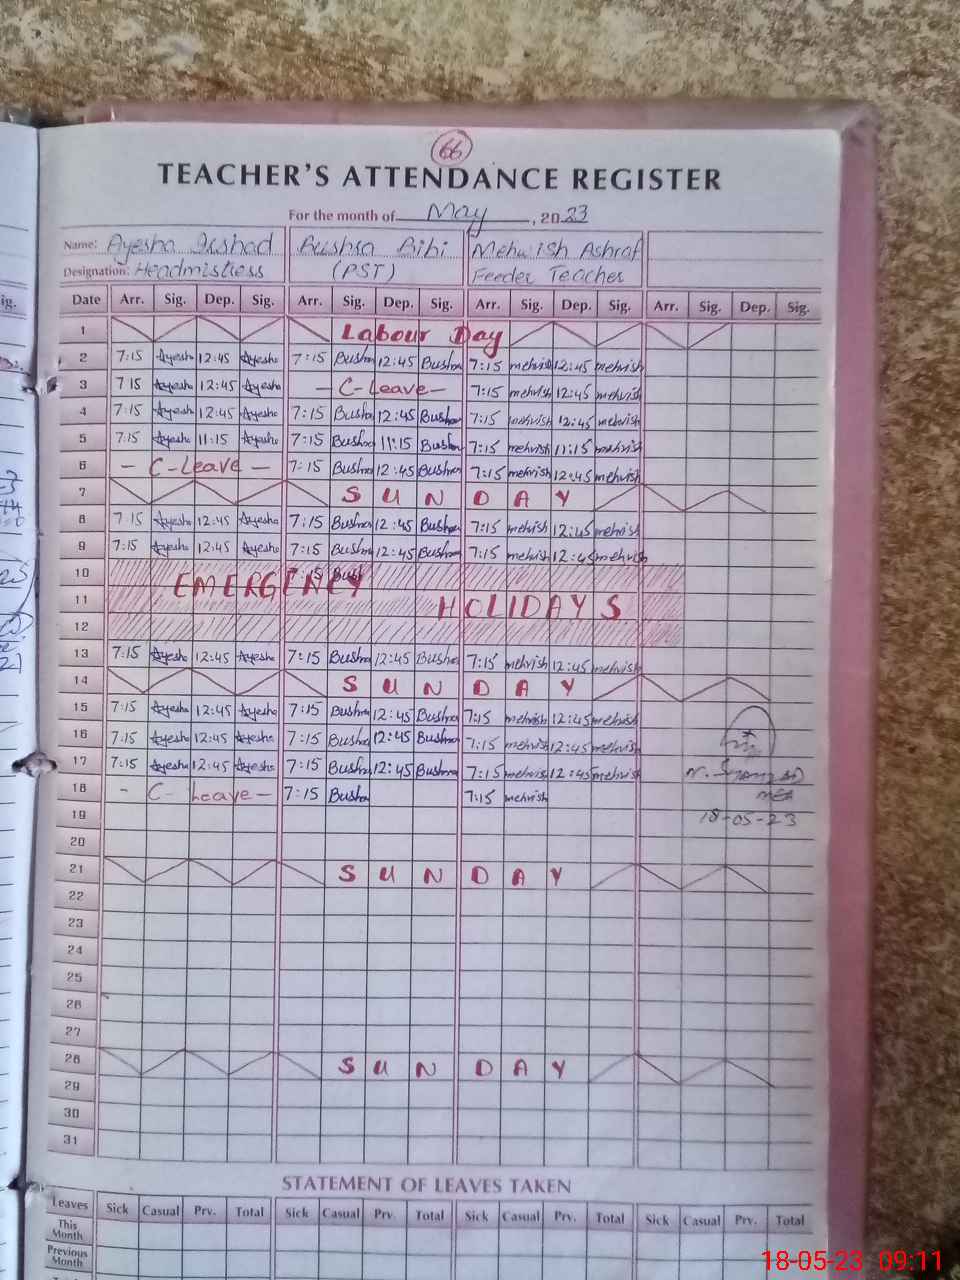 66
TEACHER'S ATTENDANCE REGISTER
For the month of May, 2023
Name: Ayesha Irshad Bushra Bibi Mehwish Ashraf
Designation: Headmistress (PST) Feeder Teacher
Date Arr. Sig. Dep. Sig. Arr. Sig. Dep. Sig. Arr. Sig. Dep. Sig. Arr. Sig. Dep. Sig.
1 Labour Day
2 7:15 Ayesha 12:45 Ayesha 7:15 Bushra 12:45 Bushra 7:15 mehwish 12:45 mehwish
3 7 15 Ayesha 12:45 Ayesha - C-Leave - 7:15 mehwish 12:45 mehwish
4 7:15 Ayesha 12:45 Ayesha 7:15 Bushra 12:45 Bushra 7:15 mehwish 12:45 mehwish
5 7:15 Ayesha 11:15 Ayesha 7:15 Bushra 11:15 Bushra 7:15 mehwish 11:15 mehwish
6 - C-Leave - 7:15 Bushra 12:45 Bushra 7:15 mehwish 12:45 mehwish
7 S U N D A Y
8 7:15 Ayesha 12:45 Ayesha 7:15 Bushra 12:45 Bushra 7:15 mehwish 12:45 mehwish
9 7:15 Ayesha 12:45 Ayesha 7:15 Bushra 12:45 Bushra 7:15 mehwish 12:45 mehwish
10 EMERGENCY 7:15 Bush
11 HOLIDAYS
12
13 7:15 Ayesha 12:45 Ayesha 7:15 Bushra 12:45 Bushra 7:15 mehwish 12:45 mehwish
14 S U N D A Y
15 7:15 Ayesha 12:45 Ayesha 7:15 Bushra 12:45 Bushra 7:15 mehwish 12:45 mehwish
16 7:15 Ayesha 12:45 Ayesha 7:15 Bushra 12:45 Bushra 7:15 mehwish 12:45 mehwish
17 7:15 Ayesha 12:45 Ayesha 7:15 Bushra 12:45 Bushra 7:15 mehwish 12:45 mehwish
18 - C- Leave - 7:15 Bushra 7:15 mehwish
19 18-05-23
20
21 S U N D A Y
22
23
24
25
26
27
28 S U N D A Y
29
30
31
STATEMENT OF LEAVES TAKEN
Leaves Sick Casual Prv. Total Sick Casual Prv. Total Sick Casual Prv. Total Sick Casual Prv. Total
This Month
Previous Month
18-05-23 09:11